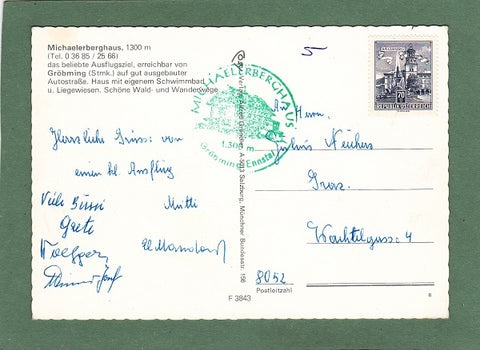 Michaelerberghaus, 1300 m
(Tel. 0 36 85 / 25 66)
das beliebte Ausflugsziel, erreichbar von
Gröbming (Stmk.) auf gut ausgebauter
Autostraße. Haus mit eigenem Schwimmbad
u. Liegewiesen. Schöne Wald- und Wanderwege
Herzliche Grüsse von
einem kl. Ausflug
Viele Bussi Mutti
Grete
Josef
MICHAELERBERGHAUS
1.300 m
Gröbming/Ennstal
A-5013 Salzburg, Münchner Bundesstr. 156
F 3843
5
An Herrn
Graz
Wachtelgasse 4
8052
Postleitzahl
8
70
REPUBLIK ÖSTERREICH